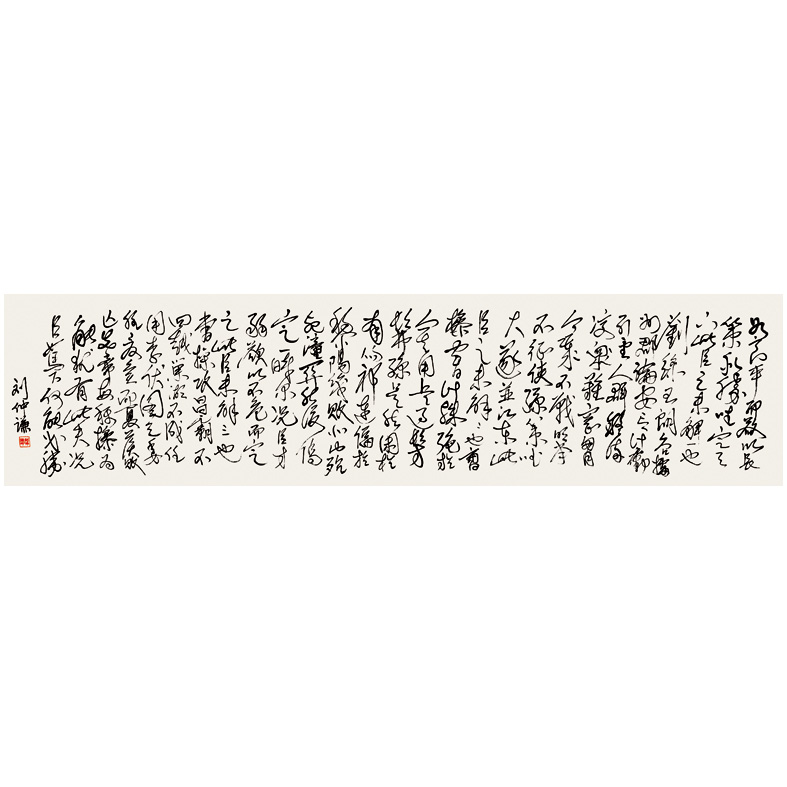 如良平而欲以長
策取勝坐定天
下此臣之未解一也
劉繇王朗各據
州郡論安言計動
引聖人群疑滿
腹衆難塞胸
今歲不戰明年
不征使孫策坐
大遂並江東此
臣之未解二也曹
操智計殊絕於
人其用兵也髣
髴孫吳然困於
南祁連偪於
黎陽幾敗北山殆
死潼關然後偽
定一時尔況臣才
弱而欲以不危而定
之此臣未解三也
曹操攻昌霸不
四越巢湖不成任
用李服圖之委
任夏侯而夏侯敗
亡先帝每稱操為
能猶有此失況
臣駑下何能必勝
刘仲谦